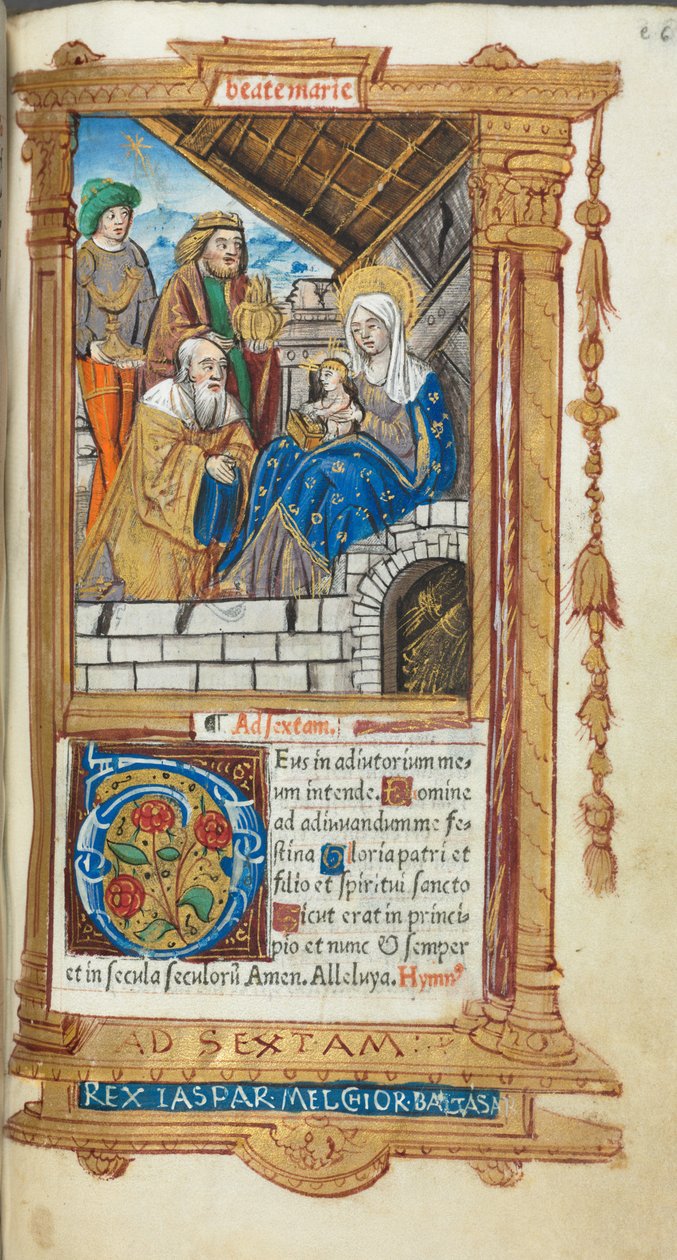 e 6
beate marie
¶ Ad sextam.
Eus in adiutorium me⸗
um intende. Domine
ad adiuvandum me fe⸗
stina Gloria patri et
filio et spiritui sancto
Sicut erat in princi⸗
pio et nunc & semper
et in secula seculorũ Amen. Alleluya. Hymnꝰ
AD SEXTAM:
REX IASPAR·MELCHIOR·BALTASAR